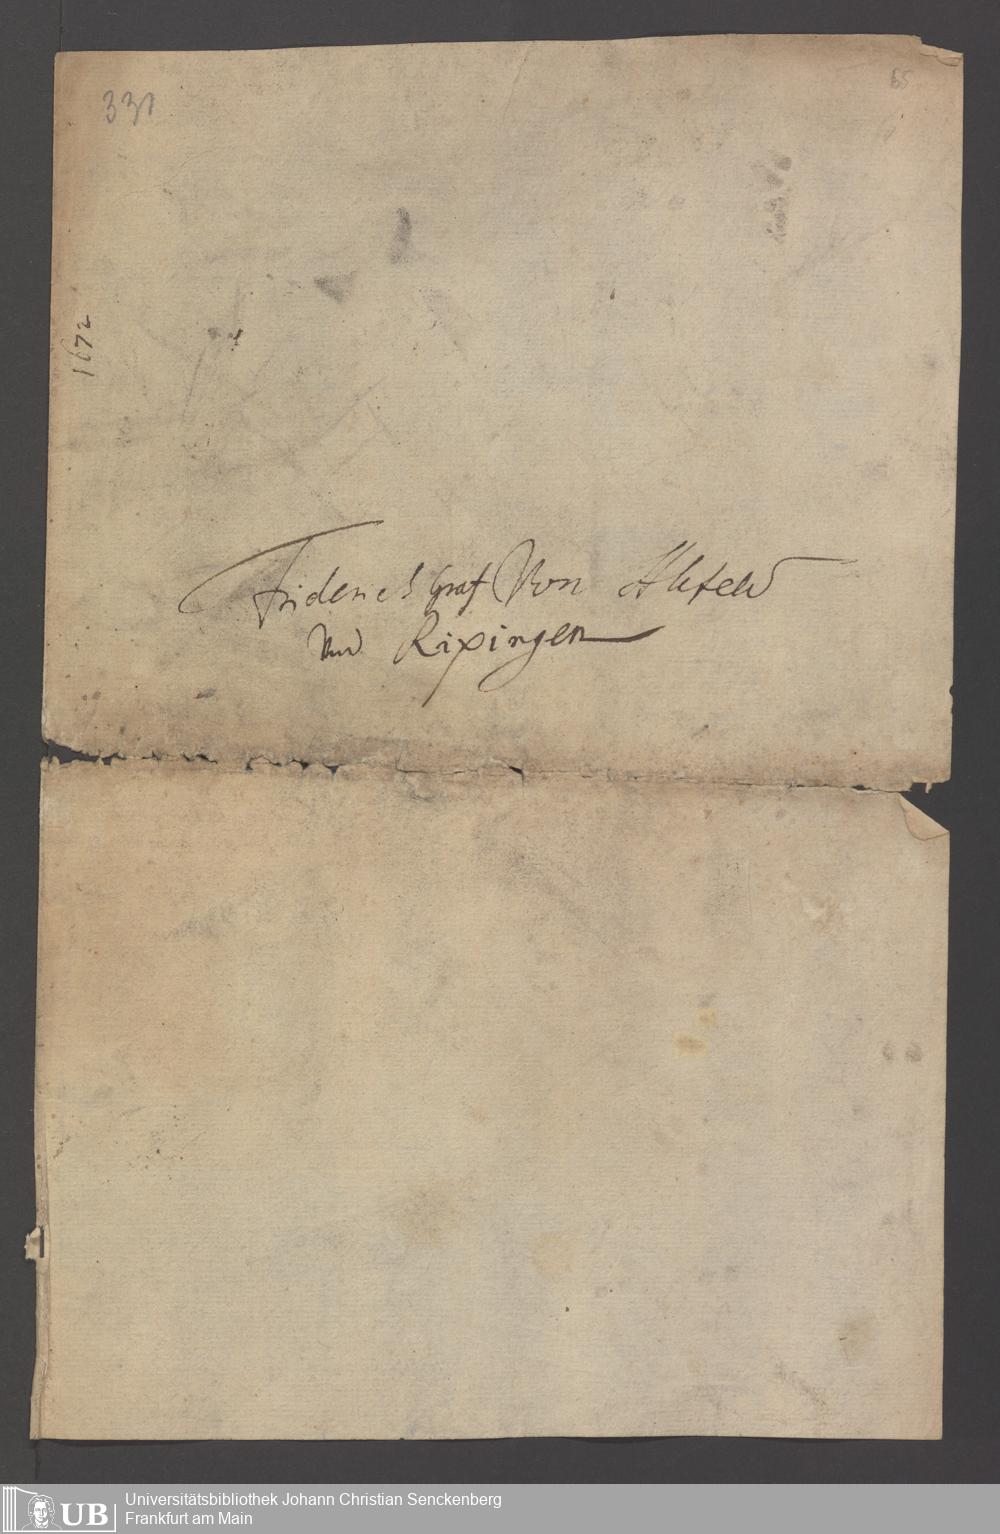 331
65
1672
Friderich Graf Von Alefeld
Und Rixingen
UB
Universitätsbibliothek Johann Christian Senckenberg
Frankfurt am Main